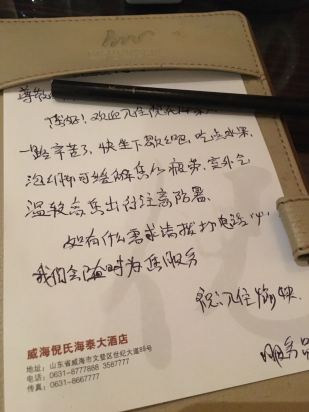 尊敬
您好！欢迎入住倪氏海泰
一路辛苦了，快坐下歇歇吧，吃点水果，
泡泡脚可缓解您的疲劳，室外气
温较高出外注意防暑。
如有什么需求请拨打电话“4”，
我们会随时为您服务
祝：入住愉快
服务员
威海倪氏海泰大酒店
地址：山东省威海市文登区世纪大道85号
电话：0631-8777888 3587777
传真：0631-8667777